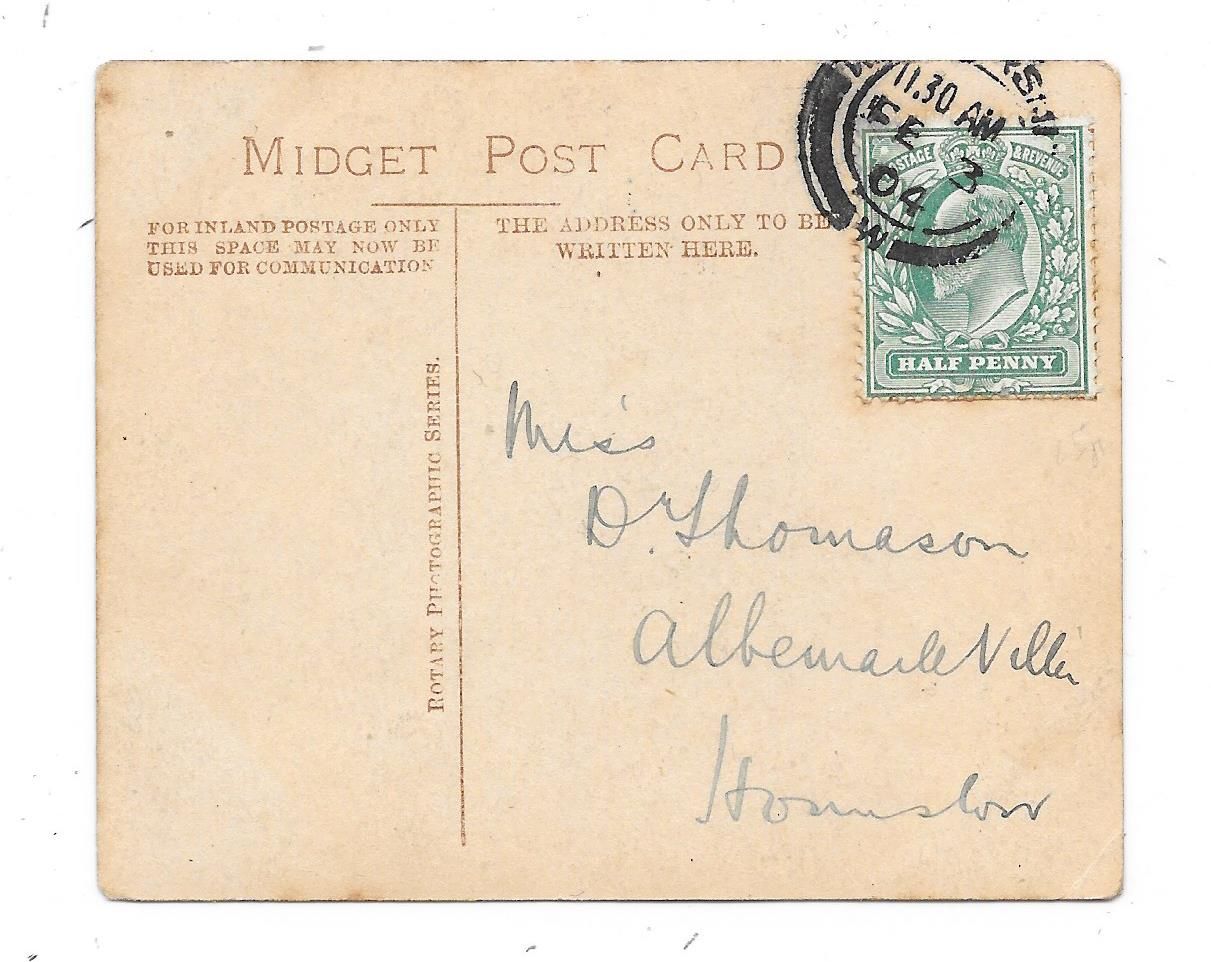 MIDGET POST CARD
FOR INLAND POSTAGE ONLY
THIS SPACE MAY NOW BE
USED FOR COMMUNICATION
THE ADDRESS ONLY TO BE
WRITTEN HERE.
ROTARY PHOTOGRAPHIC SERIES.
11.30 AM
FE 3
04
W
POSTAGE & REVENUE
HALF PENNY
Miss
D. Thomason
Albemarle Villa
Hounslow